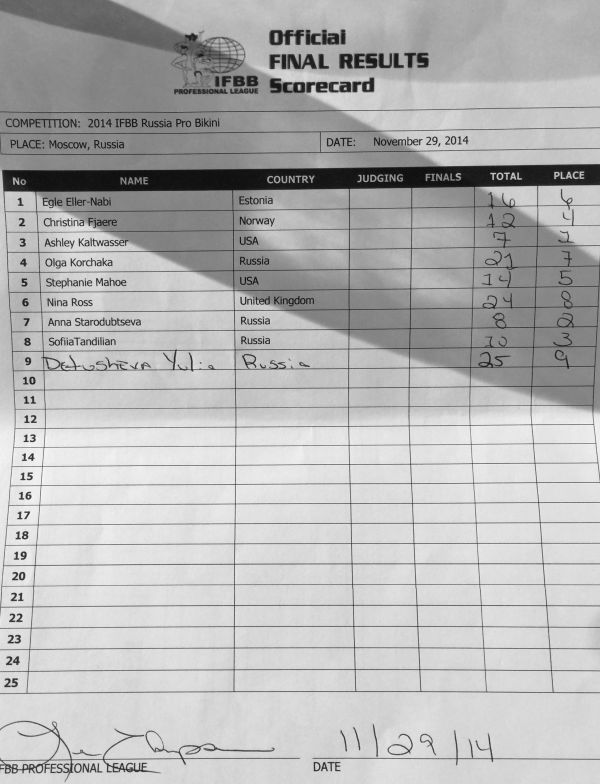 Official
FINAL RESULTS
Scorecard
IFBB
PROFESSIONAL LEAGUE
COMPETITION: 2014 IFBB Russia Pro Bikini
PLACE: Moscow, Russia DATE: November 29, 2014
No NAME COUNTRY JUDGING FINALS TOTAL PLACE
1 Egle Eller-Nabi Estonia 16 6
2 Christina Fjaere Norway 12 4
3 Ashley Kaltwasser USA 7 1
4 Olga Korchaka Russia 21 7
5 Stephanie Mahoe USA 14 5
6 Nina Ross United Kingdom 24 8
7 Anna Starodubtseva Russia 8 2
8 SofiiaTandilian Russia 10 3
9 Detusheva Yulia Russia 25 9
10
11
12
13
14
15
16
17
18
19
20
21
22
23
24
25
11/29/14
IFBB PROFESSIONAL LEAGUE DATE